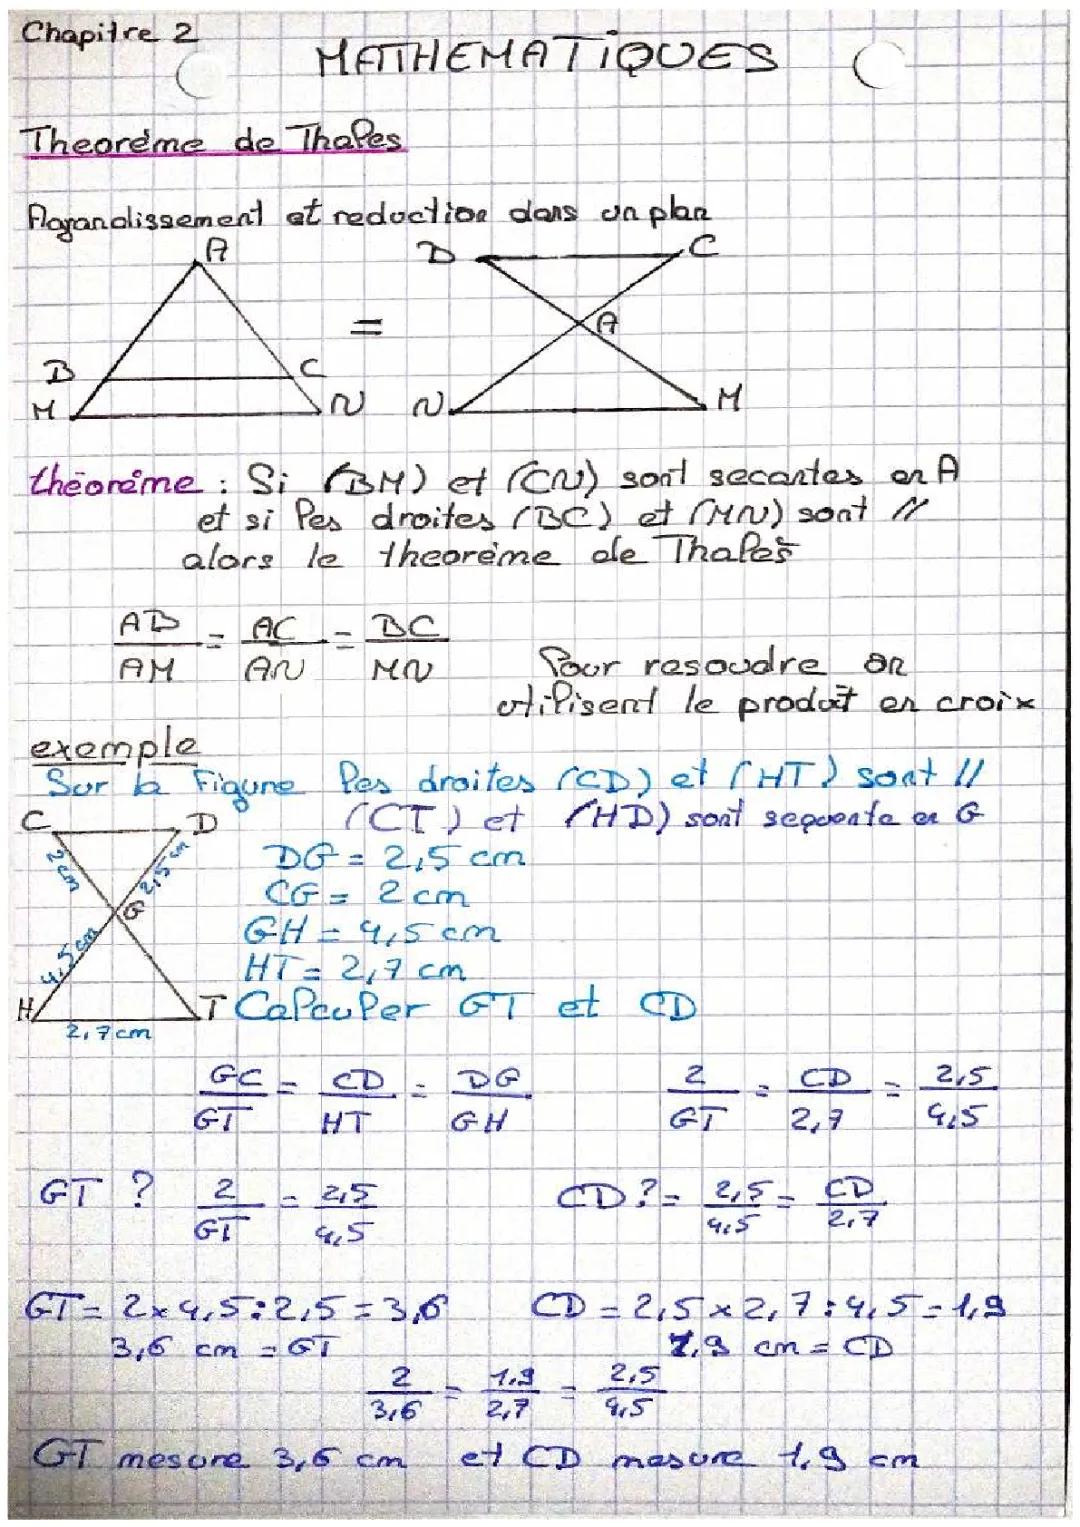 Chapitre 2
MATHEMATiQUES
Theoréme de Thales
Agrandissement et reduction dans un plan
A
D C
=
A
B C
M N N M
théoréme : Si (BM) et (CN) sont secantes en A
et si les droites (BC) et (MN) sont //
alors le theoréme de Thales
AB/AM = AC/AN = BC/MN
Pour resoudre on
utilisent le produit en croix
exemple
Sur la Figure les droites (CD) et (HT) sont //
C D (CT) et (HD) sont sequente en G
2 cm 2,5 cm DG = 2,5 cm
CG = 2 cm
G
GH = 4,5 cm
4,5 cm HT = 2,7 cm
H T Calculer GT et CD
2,7 cm
GC/GT = CD/HT = DG/GH 2/GT = CD/2,7 = 2,5/4,5
GT ? 2/GT = 2,5/4,5 CD ? = 2,5/4,5 = CD/2,7
GT = 2 x 4,5 : 2,5 = 3,6 CD = 2,5 x 2,7 : 4,5 = 1,9
3,6 cm = GT 1,9 cm = CD
2/3,6 = 1,9/2,7 = 2,5/4,5
GT mesure 3,6 cm et CD mesure 1,9 cm